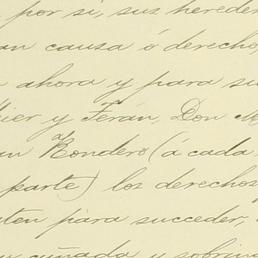 por sí, sus hereder
an causa ó derecho,
ahora y para su
ier y Terán, Don M
an Rondero (á cada
parte) los derechos
ten para suceder,
cuñada y sobrina